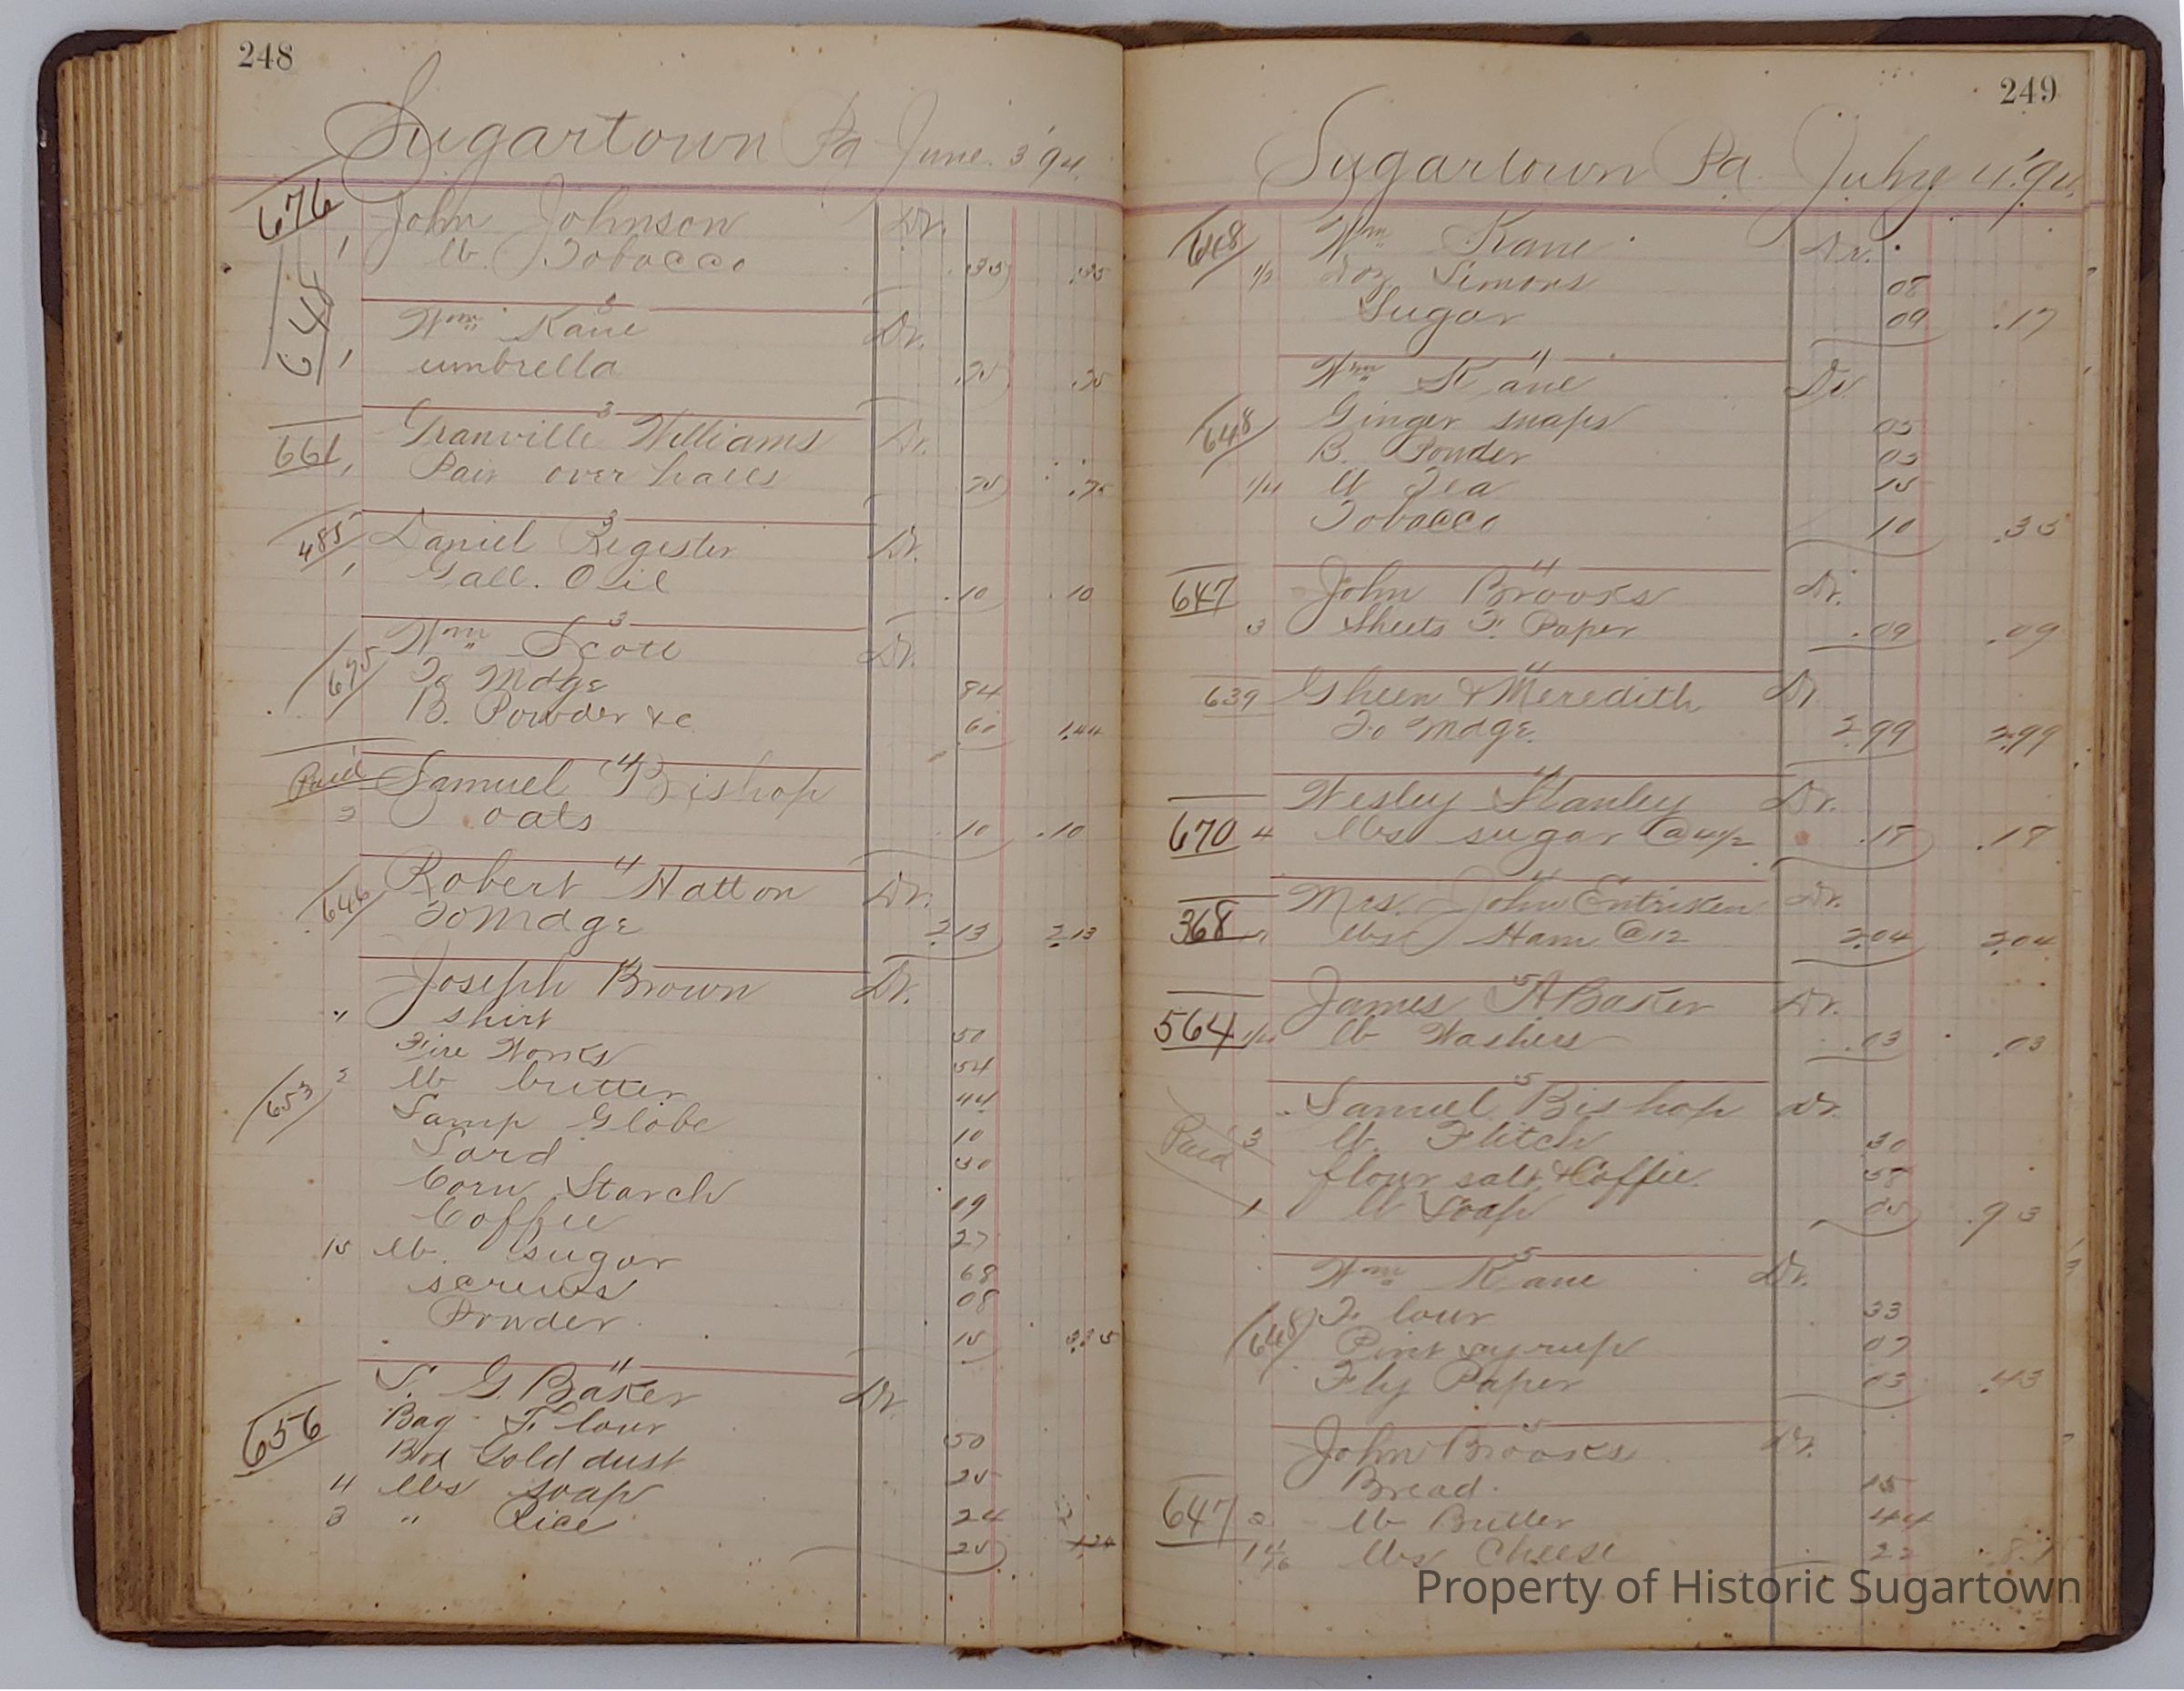 248
Sugartown Pa June. 3 '94.
676 John Johnson Dr.
1 lb. Tobacco .35 .35
3
648 Wm Kane Dr.
1 umbrella .75 .75
3
661 Granville Williams Dr.
1 Pair over halls 75 .75
3
485 Daniel Register Dr.
1 Gall. Oil .10 .10
3
675 Wm Scott Dr.
To Mdge 84
B. Powder &c 60 1.44
4
Paid Samuel Bishop
3 oats .10 .10
4
646 Robert Hatton Dr.
To Mdge 2.13 2.13
4
Joseph Brown Dr.
" shirt 50
Fire Works 54
653 2 lb butter 44
Lamp Globe 10
Lard 30
Corn Starch 19
Coffee 27
15 lb. sugar 68
screws 08
Powder 15 3.25
4
S. G. Baker Dr.
656 Bag Flour 50
Box Gold dust 25
4 lbs soap 24
3 " Rice 25 1.24
249
Sugartown Pa. July 4. '94.
648 Wm Kane Dr.
1/2 doz Limons 08
Sugar 09 .17
4
Wm Kane Dr.
648 Ginger snaps 05
B. Powder 05
1/4 lb Tea 15
Tobacco 10 .35
4
647 John Brooks Dr.
3 Sheets F. Paper .09 .09
4
639 Gheen & Meredith Dr.
To Mdge. 2.99 2.99
4
Wesley Stanley Dr.
670 4 lbs sugar @ 4 1/2 .18 .18
4
Mrs. John Entriken Dr.
368 lbs Ham @ 12 2.04 2.04
5
James A Baker Dr.
564 1/2 lb Washers .03 .03
5
Samuel Bishop Dr.
Paid 3 lb. Flitch 30
flour salt & Coffee. 58
1 lb Soap 05 .93
5
Wm Kane Dr.
648 Flour 33
Pint syrup 07
Fly Paper 03 .43
5
John Brooks Dr.
Bread. 15
647 2 lb Butter 44
lbs Cheese 22 .81
Property of Historic Sugartown